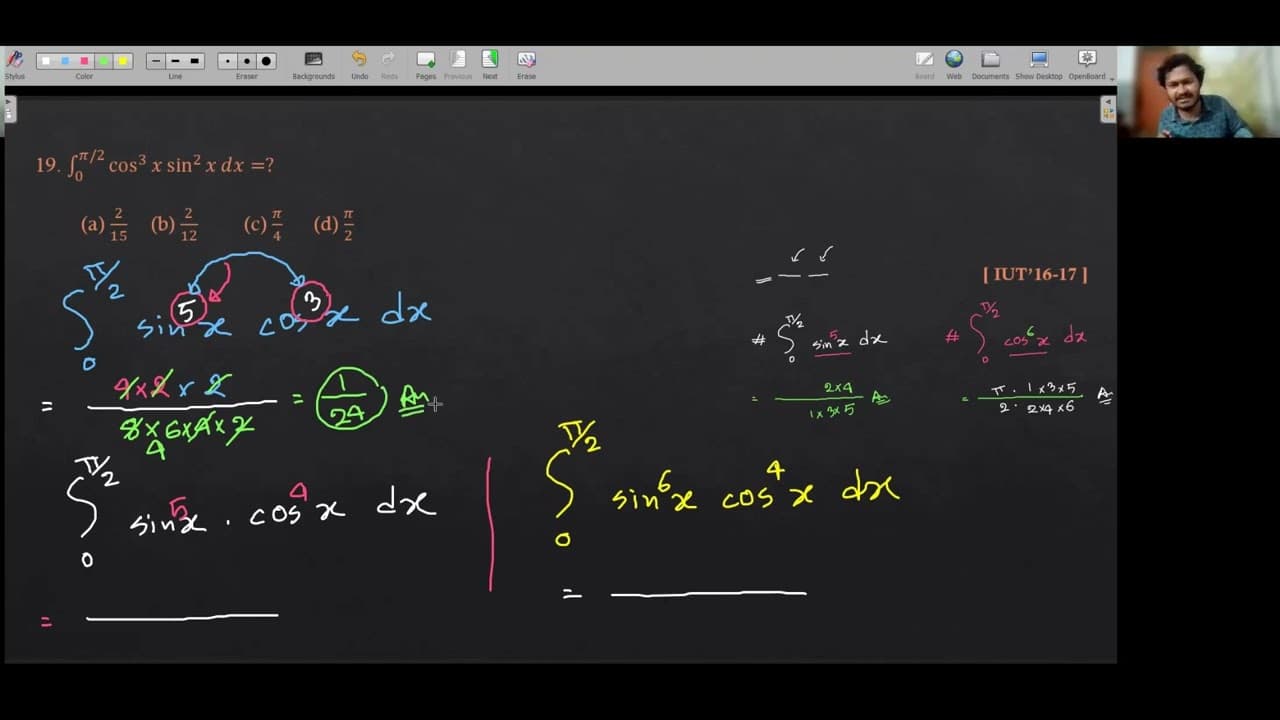 Stylus Color Line Eraser Backgrounds Undo Redo Pages Previous Next Erase Board Web Documents Show Desktop OpenBoard
19. ∫₀^{π/2} cos³ x sin² x dx =?
(a) 2/15 (b) 2/12 (c) π/4 (d) π/2
[ IUT'16-17 ]
∫₀^{π/2} sin⁵x cos³x dx
= (4×2×2)/(8×6×4×2) = 1/24 Ans
4
∫₀^{π/2} sin⁵x . cos⁴x dx
=
∫₀^{π/2} sin⁶x cos⁴x dx
=
=
# ∫₀^{π/2} sin⁵x dx
= (2×4)/(1×3×5) Ans
# ∫₀^{π/2} cos⁶x dx
= (π . 1×3×5)/(2 . 2×4×6) Ans